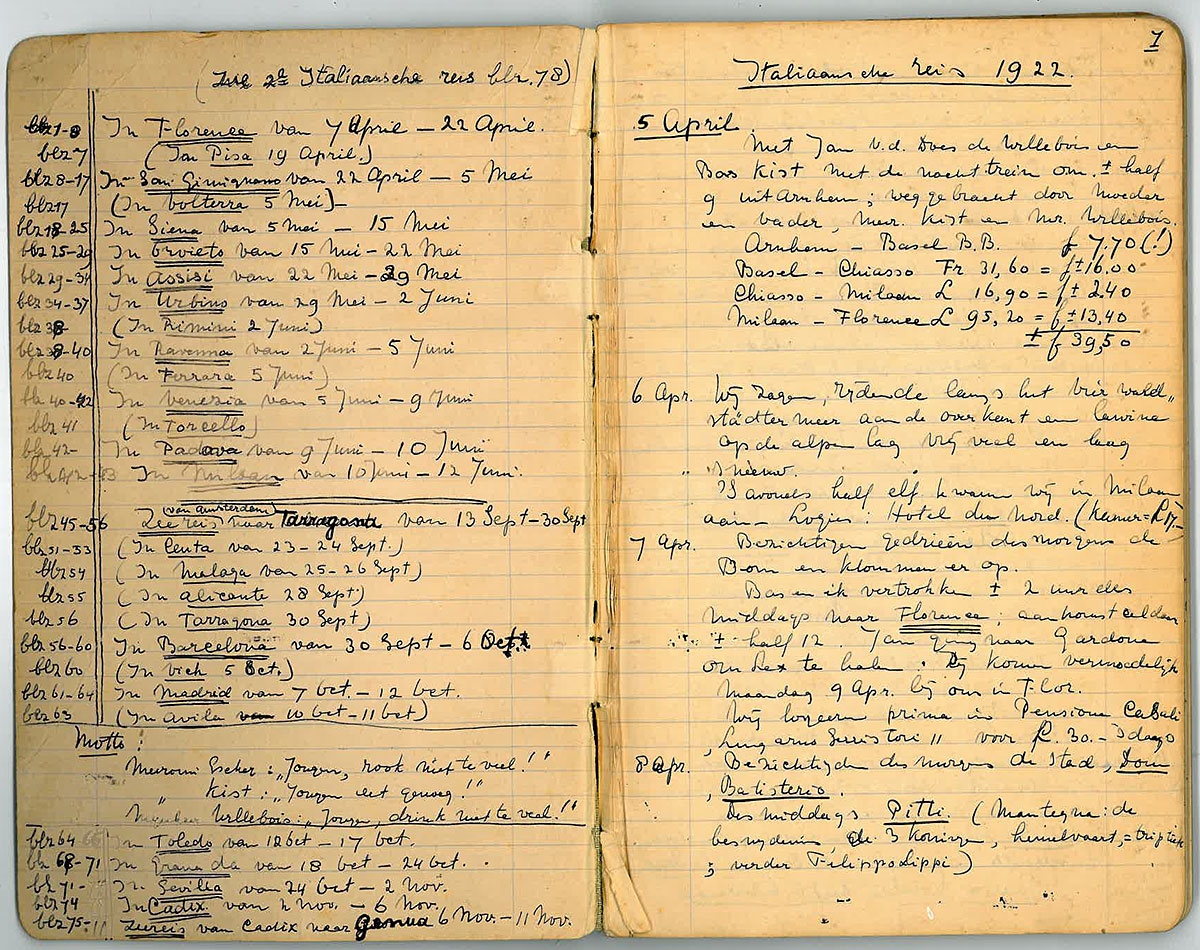 (Zie 2e Italiaansche reis blz. 78)
blz 1-8 In Florence van 7 April – 22 April.
blz 7 (In Pisa 19 April.)
blz 8-17 In San Gimignano van 22 April – 5 Mei
blz 17 (In Volterra 5 Mei)
blz 18-25 In Siena van 5 Mei – 15 Mei
blz 25-29 In Orvieto van 15 Mei – 22 Mei
blz 29-34 In Assisi van 22 Mei – 29 Mei
blz 34-37 In Urbino van 29 Mei – 2 Juni
blz 38 (In Rimini 2 Juni)
blz 38-40 In Ravenna van 2 Juni – 5 Juni
blz 40 (In Ferrara 5 Juni)
blz 40-42 In Venezia van 5 Juni – 9 Juni
blz 41 (In Torcello)
blz 42- In Padova van 9 Juni – 10 Juni
blz 42-43 In Milaan van 10 Juni – 12 Juni.
blz 45-56 Zeereis (van Amsterdam) naar Tarragona van 13 Sept-30 Sept
blz 51-53 (In Ceuta van 23-24 Sept.)
blz 54 (In Malaga van 25-26 Sept)
blz 55 (In Alicante 28 Sept)
blz 56 (In Tarragona 30 Sept)
blz 56-60 In Barcelona van 30 Sept – 6 Oct.
blz 60 (In Vich 5 Oct.)
blz 61-64 In Madrid van 7 Oct. – 12 Oct.
blz 63 (In Avila 10 Oct – 11 Oct)
Motto:
Mevrouw Escher: „Jongen, rook niet te veel!"
" Kist: „Jongen eet genoeg!"
Meneer Willebois: „Jongen, drink niet te veel!"
blz 64 In Toledo van 12 Oct – 17 Oct.
blz 68-71 In Granada van 18 Oct – 24 Oct.
blz 71- In Sevilla van 24 Oct – 2 Nov.
blz 74 In Cadix van 2 Nov. – 6 Nov.
blz 75- Zeereis van Cadix naar Genua 6 Nov. – 11 Nov.
1
Italiaansche reis 1922.
5 April
Met Jan v.d. Does de Willebois en
Bas Kist met de nachttrein om ± half
9 uit Arnhem; weggebracht door moeder
en vader, mevr. Kist en mr. Willebois.
Arnhem – Basel B.B. f 7.70 (!)
Basel – Chiasso Fr 31,60 = f ± 16.00
Chiasso – Milaan L 16,90 = f ± 2.40
Milaan – Florence L 95,20 = f ± 13,40
± f 39,50
6 Apr. Wij zagen, rijdende langs het vierwald„
städter meer aan de overkant en lawine
op de alpen lag vrij veel en laag
sneeuw.
's Avonds half elf kwamen wij in Milaan
aan – Logies: Hotel du Nord. (Kamer=£17,-
7 Apr. Bezichtigen gedrieën des morgens de
Dom en klommen er op.
Bas en ik vertrokken ± 2 uur des
middags naar Florence; aankomst aldaar
± half 12. Jan ging naar Gardone
om Lex te halen. Zij komen vermoedelijk
Maandag 9 Apr. bij ons in Flor.
Wij logeeren prima in Pensione Casali
, Lungarno Serristori 11 voor £. 30.- 's daags
8 Apr. Bezichtigden des morgens de stad, Dom
, Batisterio.
Des middags Pitti. (Mantegna: de
besnijdenis, de 3 koningen, hemelvaart, = triptiek
; verder Filippo Lippi)